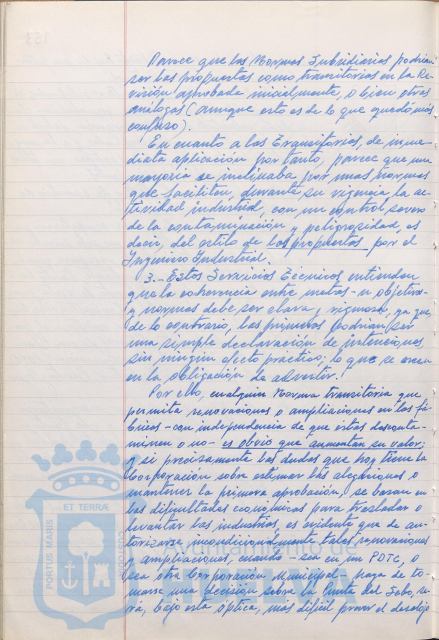 Parece que las Normas Subsidiarias podrían
ser las propuestas como transitorias en la Re-
visión aprobada inicialmente, o bien otras
análogas (aunque esto es de lo que quedó más
confuso).
En cuanto a las Transitorias, de inme-
diata aplicación por tanto, parece que una
mayoría se inclinaba por unas normas
que faciliten, durante su vigencia la ac-
tividad industrial, con un control severo
de la contaminación y peligrosidad, es
decir, del estilo de las propuestas por el
Ingeniero Industrial.
3.- Estos Servicios Técnicos entienden
que la coherencia entre metas - u objetivos
y normas debe ser clara y rigurosa, ya que
de lo contrario, las primeras podrían ser
una simple declaración de intenciones
sin ningún efecto práctico; lo que se creen
en la obligación de advertir!
Por ello, cualquier Norma transitoria que
permita renovaciones o ampliaciones en las fá-
bricas - con independencia de que estas descontaminen
o no - es obvio que aumentan su valor;
y si precisamente las dudas que hoy tiene la
Corporación sobre estimar las alegaciones o
mantener la primera aprobación, se basan en
las dificultades económicas para trasladar o
levantar las industrias, es evidente que de au-
torizarse incondicionalmente tales renovaciones
y ampliaciones, cuando - sea en un POTC, o
sea otra Corporación Municipal, haya de to-
marse una decisión sobre la Punta del Sebo, se-
rá, bajo esta óptica, más difícil prever el desalojo
ET TERRÆ
PORTUS MARIS
CUSTODIA
Ayuntamiento de